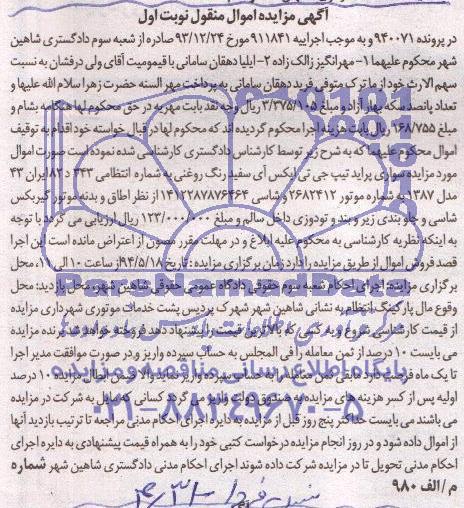 آگهی مزایده اموال منقول نوبت اول
در پرونده ۹۴۰۰۷۱ و به موجب اجراییه ۹۱۱۸۴۱ مورخ ۹۳/۱۲/۲۴ صادره از شعبه سوم دادگستری شاهین
شهر محکوم علیهما ۱- مهرانگیز زالک زاده ۲- ایلیا دهقان سامانی با قیمومیت آقای ولی درفشان به نسبت
سهم الارث خود از ما ترک متوفی فرید دهقان سامانی به پرداخت مهر السنه حضرت زهرا سلام الله علیها و
تعداد پانصد سکه بهار آزاد و مبلغ ۳/۳۷۵/۱۰۵ ریال وجه نقد بابت مهریه در حق محکوم لها هنگامه بشام و
مبلغ ۱۶۸/۷۵۵ ریال بابت هزینه اجرا محکوم گردیده اند که محکوم لها در قبال خواسته خود اقدام به توقیف
اموال محکوم علیهما که به شرح زیر توسط کارشناس دادگستری کارشناسی شده نموده است صورت اموال
مورد مزایده سواری پراید تیپ جی تی ایکس آی سفید رنگ روغنی به شماره انتظامی ۴۴۳ د ۸۲ ایران ۴۳
مدل ۱۳۸۷ به شماره موتور ۲۶۸۲۴۱۲ و شاسی ۱۴۱۲۲۸۷۸۷۶۴۶۴ از نظر اطاق و بدنه موتور گیربکس
شاسی و جلو بندی زیر و بند و تودوزی داخل سالم و مبلغ ۱۲۳/۰۰۰/۰۰۰ ریال ارزیابی می گردد با توجه
به اینکه نظریه کارشناسی به محکوم علیه ابلاغ و در مهلت مقرر مصون از اعتراض مانده است این اجرا
قصد فروش اموال از طریق مزایده را دارد زمان برگزاری مزایده: تاریخ ۹۴/۵/۱۸ از ساعت ۱۰ الی ۱۱، محل
برگزاری مزایده: اجرای احکام شعبه سوم حقوقی دادگاه عمومی حقوقی شاهین شهر، محل بازدید: محل
وقوع مال پارکینگ انتظام به نشانی شاهین شهر شهرک پردیس پشت خدمات موتوری شهرداری مزایده
از قیمت کارشناسی شروع و به کسی که بالاترین قیمت را پیشنهاد دهد فروخته خواهد شد برنده مزایده
می بایست ۱۰ درصد از ثمن معامله را فی المجلس به حساب سپرده واریز و در صورت موافقت مدیر اجرا
تا یک ماه فرصت دارد مابقی ثمن معامله را به حساب سپرده واریز نماید والا ضمن ابطال مزایده ۱۰ درصد
اولیه پس از کسر هزینه های مزایده به صندوق دولت واریز می گردد کسانی که مایل به شرکت در مزایده
می باشند می بایست حداکثر پنج روز قبل از مزایده به دایره اجرای احکام مدنی مراجعه تا ترتیب بازدید آنها
از اموال داده شود و در روز انجام مزایده درخواست کتبی خود را به همراه قیمت پیشنهادی به دایره اجرای
احکام مدنی تحویل تا در مزایده شرکت داده شوند اجرای احکام مدنی دادگستری شاهین شهر شماره
م / الف ۹۸۰
ParsNamadData
پایگاه اطلاع رسانی مناقصه و مزایده
۰۲۱-۸۸۳۴۹۶۷۰-۵